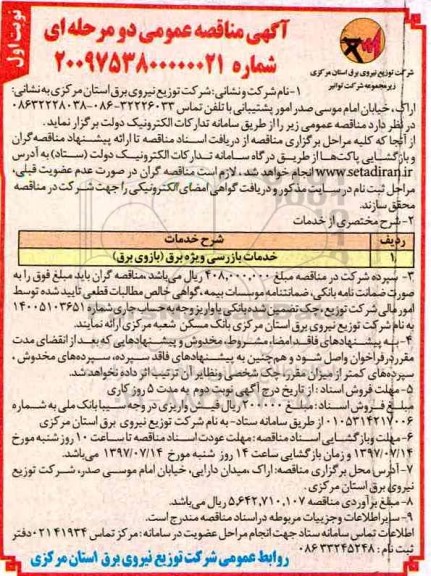 نوبت اول
آگهی مناقصه عمومی دو مرحله ای
شماره ۲۰۰۹۷۵۳۸۰۰۰۰۰۰۲۱
شرکت توزیع نیروی برق استان مرکزی
زیرمجموعه شرکت توانیر
۱-نام شرکت و نشانی: شرکت توزیع نیروی برق استان مرکزی به نشانی:
اراک، خیابان امام موسی صدر امور پشتیبانی با تلفن تماس ۳۲۲۲۶۰۳۳-۰۸۶ ۰۸۶۳۲۲۲۸۰۳۸
در نظر دارد مناقصه عمومی زیر را از طریق سامانه تدارکات الکترونیک دولت برگزار نماید.
از آنجا که کلیه مراحل برگزاری مناقصه از دریافت اسناد مناقصه تا ارائه پیشنهاد مناقصه گران
و بازگشایی پاکت‌ها از طریق درگاه سامانه تدارکات الکترونیک دولت (ستاد) به آدرس
www.setadiran.ir انجام خواهد شد، لازم است مناقصه گران در صورت عدم عضویت قبلی،
مراحل ثبت نام در سایت مذکور و دریافت گواهی امضای الکترونیکی را جهت شرکت در مناقصه
محقق سازند.
۲-شرح مختصری از خدمات
ردیف شرح خدمات
۱ خدمات بازرسی ویژه برق (بازوی برق)
۳- سپرده شرکت در مناقصه مبلغ ۴۰۸,۰۰۰,۰۰۰ ریال می‌باشد، مناقصه گران باید مبلغ فوق را به
صورت ضمانت نامه بانکی، ضمانتنامه موسسات بیمه، گواهی خالص مطالبات قطعی تایید شده توسط
امور مالی شرکت توزیع، چک تضمین شده بانکی یا واریز وجه به حساب جاری شماره ۱۴۰۰۵۱۰۳۶۵۱
به نام شرکت توزیع نیروی برق استان مرکزی بانک مسکن شعبه مرکزی ارائه نمایند.
۴- به پیشنهادهای فاقد امضا، مشروط، مخدوش و پیشنهادهایی که بعد از انقضای مدت
مقرر در فراخوان واصل شود و همچنین به پیشنهادهای فاقد سپرده، سپرده‌های مخدوش،
سپرده‌های کمتر از میزان مقرر، چک شخصی و نظایر آن ترتیب اثر داده نخواهد شد.
۵- مهلت فروش اسناد: از تاریخ درج آگهی نوبت دوم به مدت ۵ روز کاری
مبلغ فروش اسناد: مبلغ ۲۰۰,۰۰۰ ریال فیش واریزی در وجه سیبا بانک ملی به شماره
۰۱۰۵۳۱۴۲۱۷۰۰۶ از طریق سامانه ستاد- به نام شرکت توزیع نیروی برق استان مرکزی
۶- مهلت و بازگشایی اسناد مناقصه: مهلت عودت اسناد مناقصه تا ساعت ۱۰ روز شنبه مورخ
۱۳۹۷/۰۷/۱۴ و زمان بازگشایی ساعت ۱۴ روز شنبه مورخ ۱۳۹۷/۰۷/۱۴ می‌باشد.
۷-آدرس محل برگزاری مناقصه: اراک، میدان دارایی، خیابان امام موسی صدر، شرکت توزیع
نیروی برق استان مرکزی.
۸- مبلغ برآوردی مناقصه ۵,۶۴۲,۷۱۰,۱۰۷ ریال می‌باشد.
۹- سایر اطلاعات و جزییات مربوطه در اسناد مناقصه مندرج است.
اطلاعات تماس سامانه ستاد جهت انجام مراحل عضویت در سامانه: مرکز تماس ۰۲۱۴۱۹۳۴ دفتر
ثبت نام: ۰۸۶۳۳۲۴۵۲۴۸
روابط عمومی شرکت توزیع نیروی برق استان مرکزی